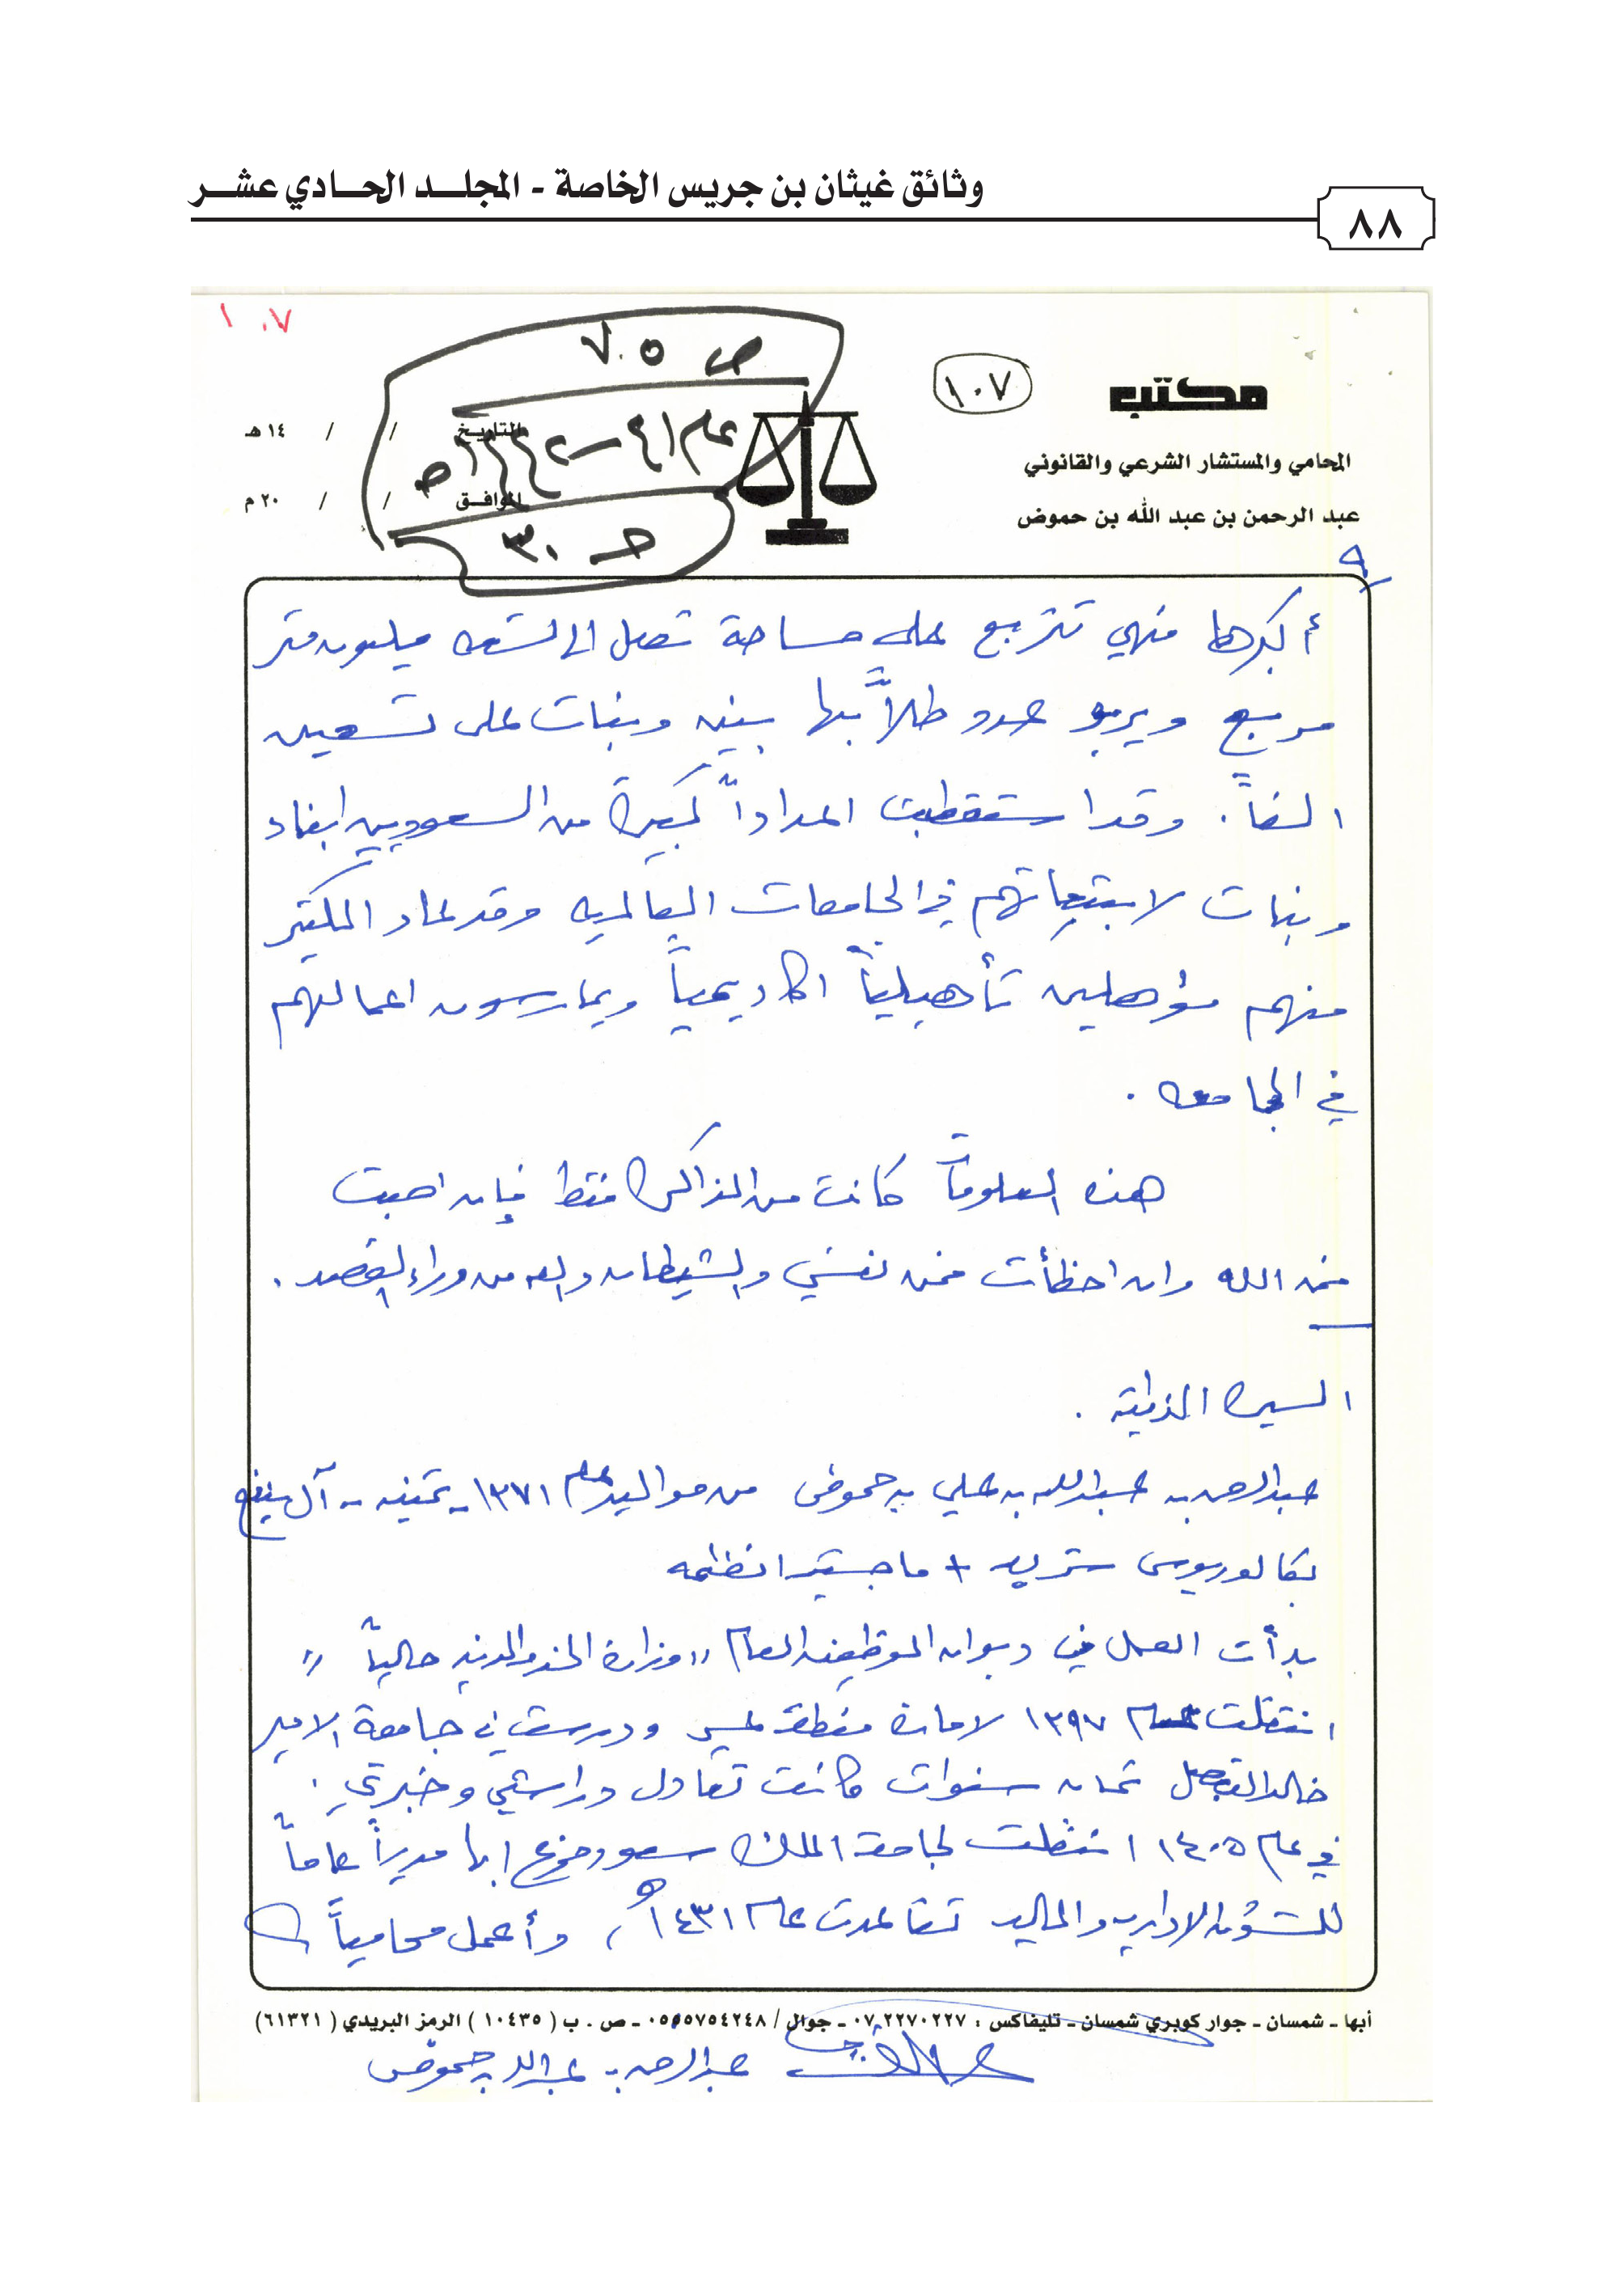 وثائق غيثان بن جريس الخاصة - المجلد الحادي عشر
٨٨
١٠٧
ص ٧٠٥
عام ٤١-١٤٤٢هـ
حـ ٣٠
١٠٧
مكتب
المحامي والمستشار الشرعي والقانوني
عبد الرحمن بن عبد الله بن حموض
التاريخ / / ١٤هـ
الموافق / / ٢٠م
٩
أكبرها فهي تتربع على مساحة تصل الى تسعه مليون متر
مربع ويربو عدد طلابها بنين وبنات على تسعين
الفاً. وقد استقطبت اعداداً كبيرة من السعوديين ابناء
وبنات لابتعاثهم في الجامعات العالميه وقد عاد الكثير
منهم مؤهلين تأهيلياً اكاديمياً ويمارسون اعمالهم
في الجامعه .
هذه المعلومات كانت من الذاكره فقط فإن اصبت
فمن الله وان اخطأت فمن نفسي والشيطان والله من وراء القصد .
السيره الذاتية .
عبدالرحمن بن عبدالله بن علي بن حموض من مواليد عام ١٣٧١ - تمنيه - آل ينفع
بكالوريوس شريعه + ماجستير انظمه
بدأت العمل في ديوان الموظفين العام "وزارة الخدمه المدنيه حالياً"
انتقلت عام ١٣٩٧ لامارة منطقة عسير ودرست في جامعة الامير
خالد الفيصل ثمان سنوات كانت تعادل دراستي وخبرتي .
في عام ١٤٠٥ انتقلت لجامعة الملك سعود فرع ابها مديراً عاماً
للشؤون الاداريه والماليه تقاعدت عام ١٤٣١هـ، وأعمل محامياً
أبها ـ شمسان ـ جوار كوبري شمسان ـ تليفاكس : ٠٧٢٢٧٠٢٢٧ ـ جوال / ٠٥٥٥٧٥٤٢٤٨ ـ ص . ب ( ١٠٤٣٥ ) الرمز البريدي ( ٦١٣٢١)
عبدالرحمن بن عبدالله بن حموض